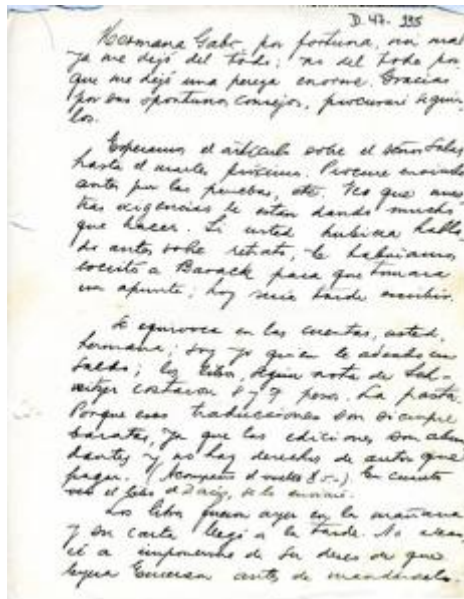 D. 47- 995
Hermana Gabr. por fortuna, mi mal
ya me dejó del todo; no del todo por
que me dejó una pereza enorme. Gracias
por sus oportunos consejos, procuraré seguir
los.
Esperamos el artículo sobre el señor Salas
hasta el martes próximo. Procure enviarlo
antes por las pruebas, etc. Veo que nues
tras exigencias le están dando mucho
que hacer. Si usted hubiera habla
do antes sobre retrato, le habríamos
escrito a Barack para que tomara
un apunte; hoy sería tarde escribir.
Se equivoca en las cuentas, usted,
hermana; soy yo quien le adeudo un
saldo; los libros, según nota de
costaron 8 y 9 pesos. La pasta.
Porque esas traducciones son siempre
baratas, ya que las ediciones son abun
dantes y no hay derechos de autor que
pagar. (Acompaño el vuelto 8.-) En cuanto
vea el libro de Daiq, se lo enviaré.
Los libros fueron ayer en la mañana
y su carta llegó a la tarde. No
a imponerme de su deseo de que
leyera Emerson antes de mandárselo.